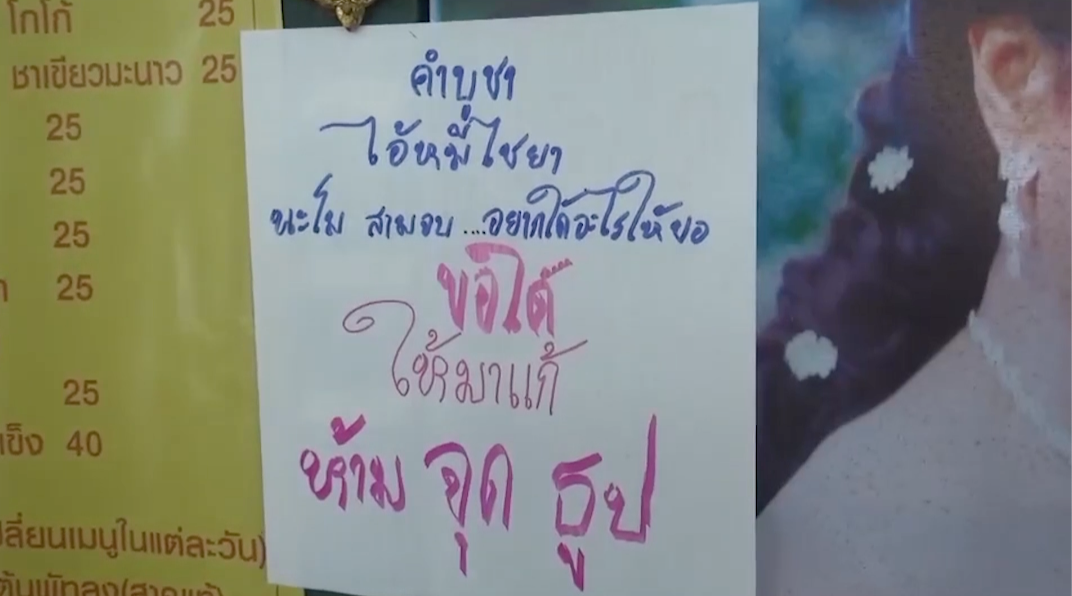 โกโก้ 25
ชาเขียวมะนาว 25
25
25
25
25
25
แข็ง 40
ปลี่ยนเมนูในแต่ละวัน)
คำบูชา
ไอ้หมี่ไชยา
นะโม สามจบ....อยากได้อะไรให้ขอ
ขอได้
ให้มาแก้
ห้าม จุด ธูป